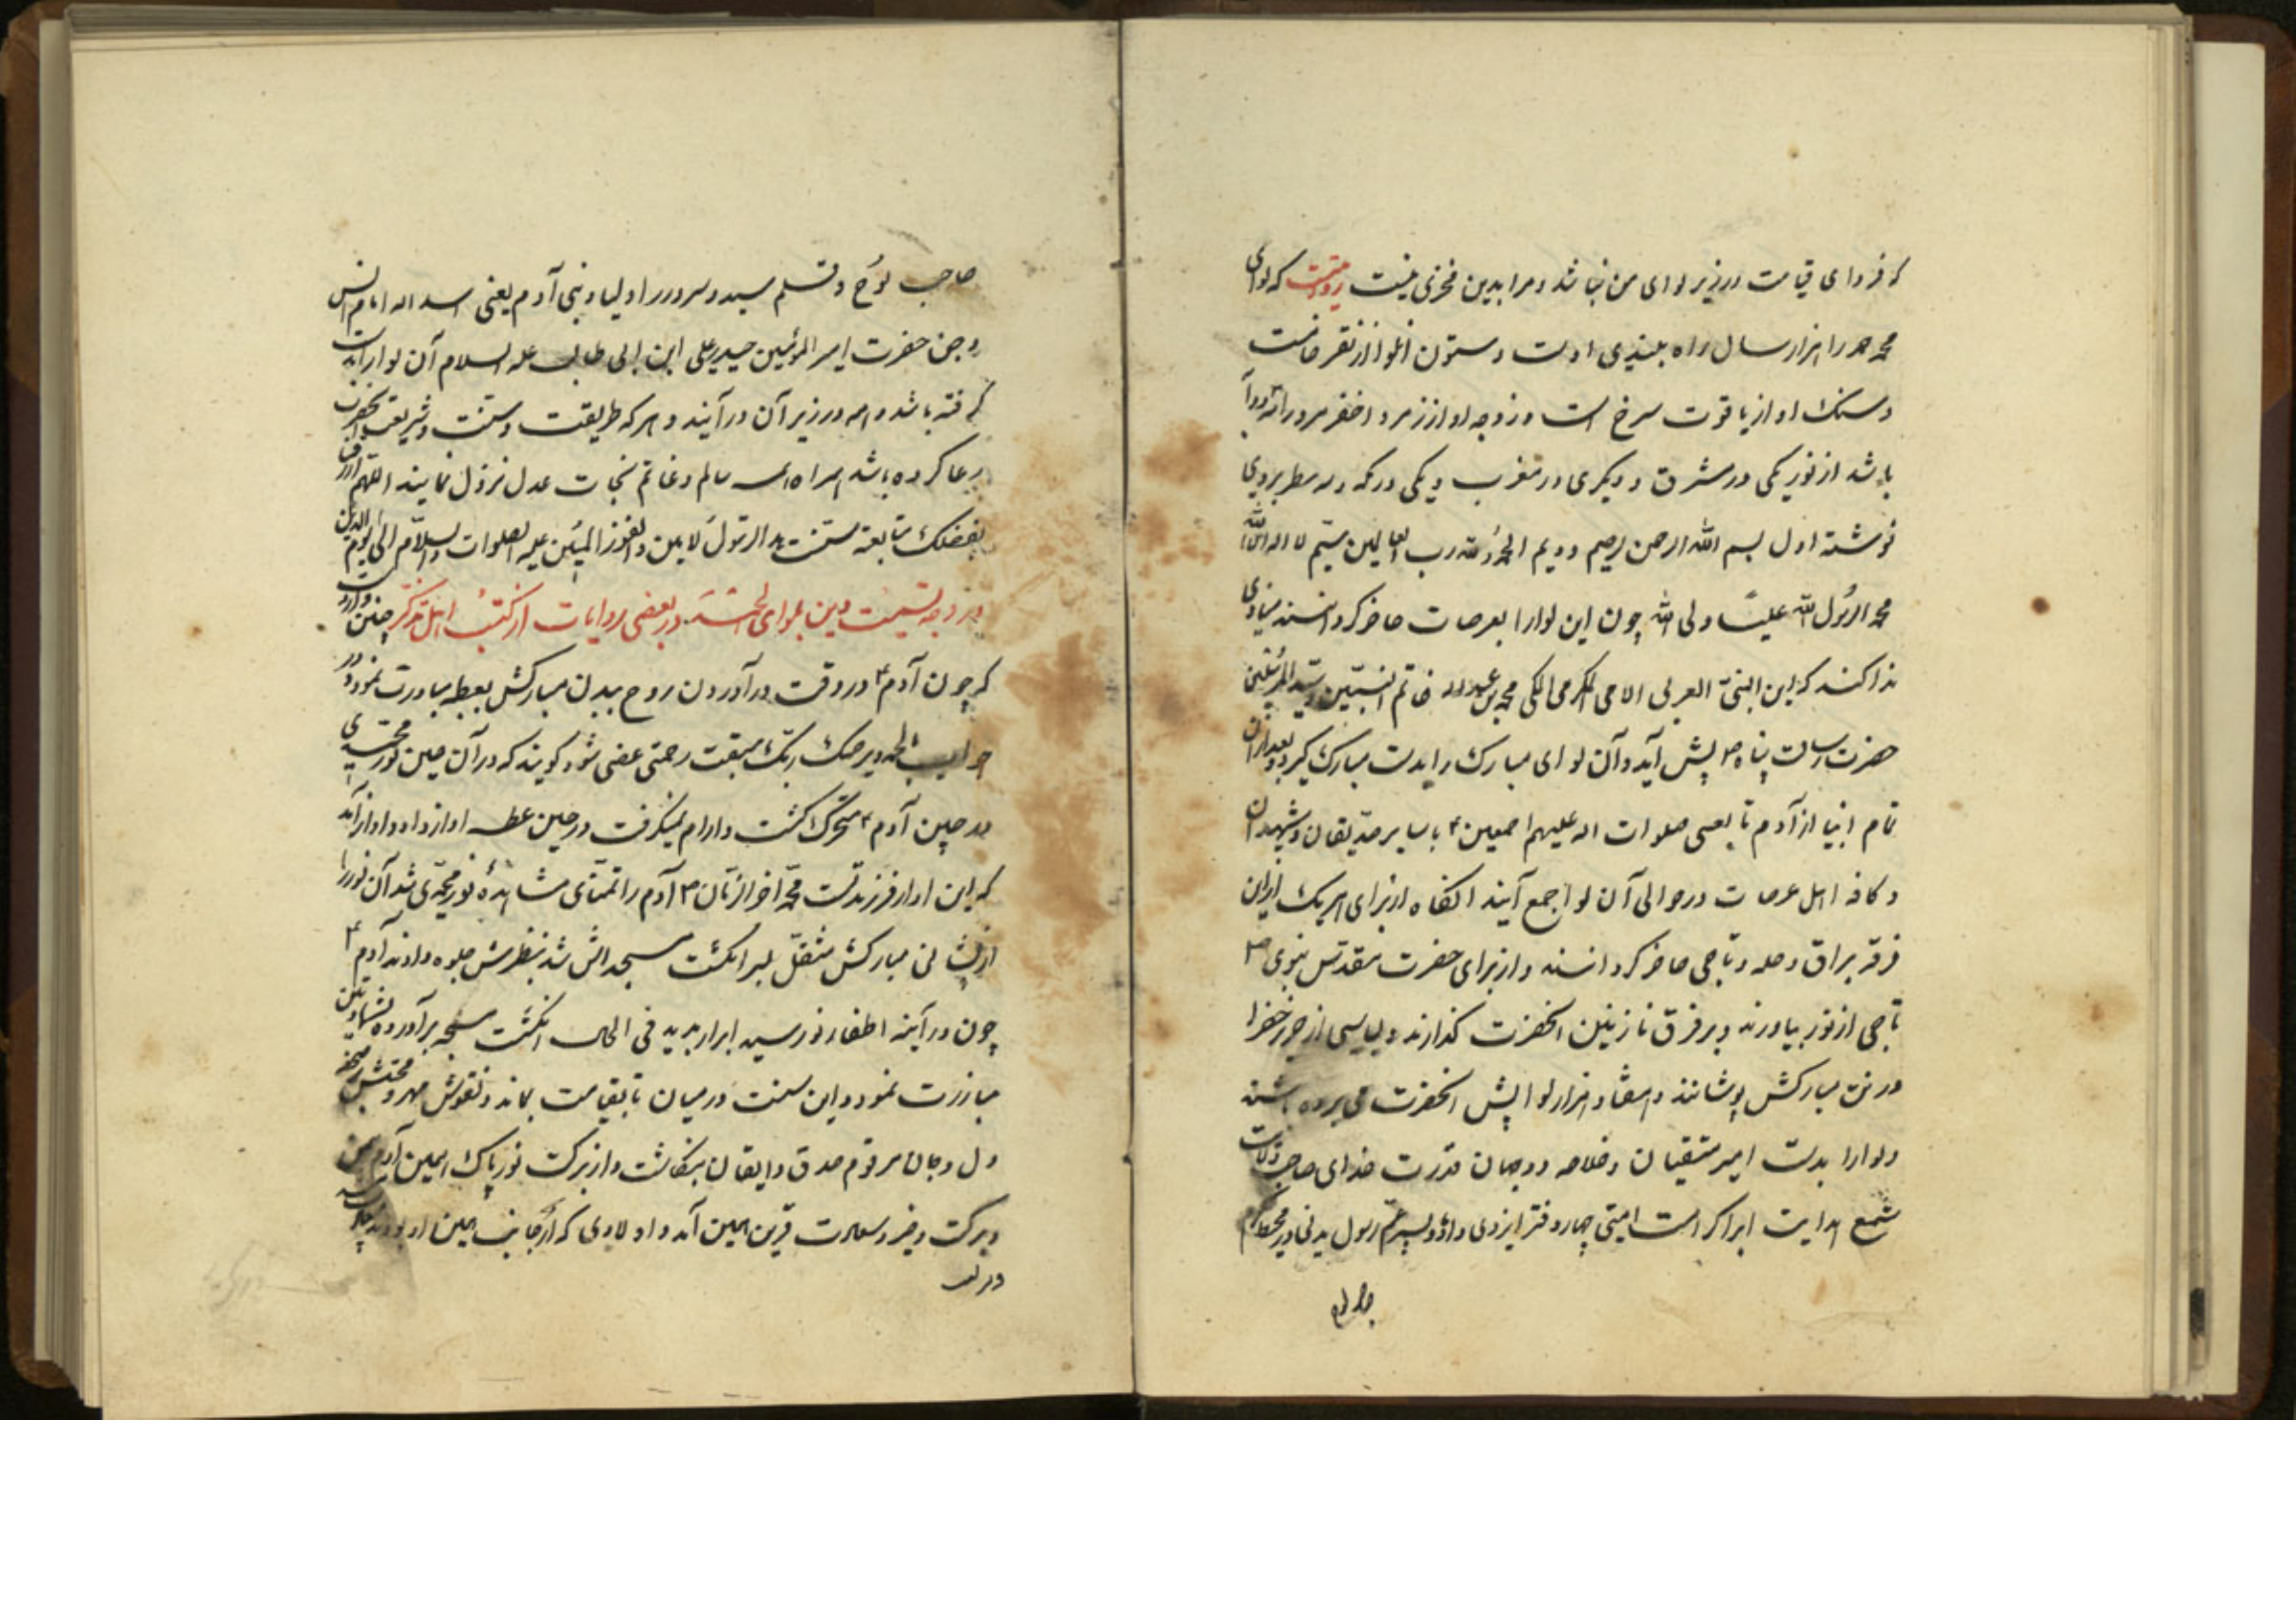 که فردای قیامت در زیر لوای من نباشد و مرا بدین فخری نیست روایتست که لوای
محمد را هزار سال راه بلندی اوست و ستون آن لوا از نقره خامست
و سنک او از یاقوت سرخ است و زوجه او از زمرد اخضر
باشد از نور یکی در مشرق و دیکری در مغرب و یکی در مکه و سه سطر بر وی
نوشته اول بسم الله الرحمن الرحیم دویم الحمد لله رب العالمین سیم لا اله الا الله
محمد الرسول الله علیا ولی الله چون این لوا را بعرصات حاضر کردانند منادی
ندا کند که این النبی العربی الامی المکی محمد بن عبد الله خاتم النبیین و سید المرسلین
حضرت رسالت پناه ص پیش آید و آن لوای مبارک را بدست مبارک کیرد و بعد از آن
تمام انبیا از آدم تا بعیسی صلوات اله علیهم اجمعین با سایر صدیقان و شهیدان
و کافه اهل عرصات در حوالی آن لوا جمع آیند انکاه از برای هر یک از این
فرقه براق و حله و تاجی حاضر کردانند و از برای حضرت مقدس نبوی ص
تاجی از نور بیاورند و بر فرق نازنین انحضرت کذارند و لباسی از حریر خضرا
در تن مبارکش پوشانند و هفتاد هزار لوا پیش انحضرت می برده باشند
و لوا را بدست امیر متقیان و خلاصه دو جهان قدرت خدای صاحب
شمع هدایت ابرار که است امیتی چهار دفتر ایزدی داود و پسر عم رسول مدنی و بر محمد
صاحب لوح و قلم سید و سرور اولیاء بنی آدم یعنی اسد اله امام انس
و جن حضرت امیر المؤمنین حیدر علی ابن ابی طالب علیه السلام آن لوا را بدست
کرفته باشد و همه در زیر آن درآیند و هر که طریقت و سنت و شریعت انحضرت
رعا کرده باشد همراه سالم و غانم نجات عدل نزول نمایند اللهم ارزقنا
بفضلک متابعة سنت الرسول الامین و الفوز المبین علیه الصلوات و السلام الی یوم الدین
در وجه تسمیت دین بلوای الحمد در بعضی روایات از کتب اهل تذکر چنین وارد
که چون آدم ع در وقت درآوردن روح ببدن مبارکش بعطسه مبادرت نمود و در
جواب الحمد یرحمک ربک سبقت رحمتی غضبی شنود کویند که در آن حین نور محمدی
در جبین آدم ع متحرک کشت و آرام نمیکرفت در حین عطسه آواز داد و آواز آمد
که این آواز فرزند تست محمد آخر الزمان ص آدم را تمنای مشاهده نور محمدی شد آن نور را
از پیشانی مبارکش منتقل بسر انکشت مسبحه اش شد بنظرش جلوه دادند آدم ع
چون در آینه اظفار نور سید ابرار بدید فی الحال انکشت مسبحه برآورده بشهادتین
مبادرت نمود و این سنت در میان تا بقیامت بماند و نقوش مهر و محبتش بر صفحه
دل و جان مرقوم صدق و ایقان بنکاشت و از برکت نور پاک
و برکت و خیر و سعادت قرین یمین آمد و اولادی که از جانب یمین او بودند